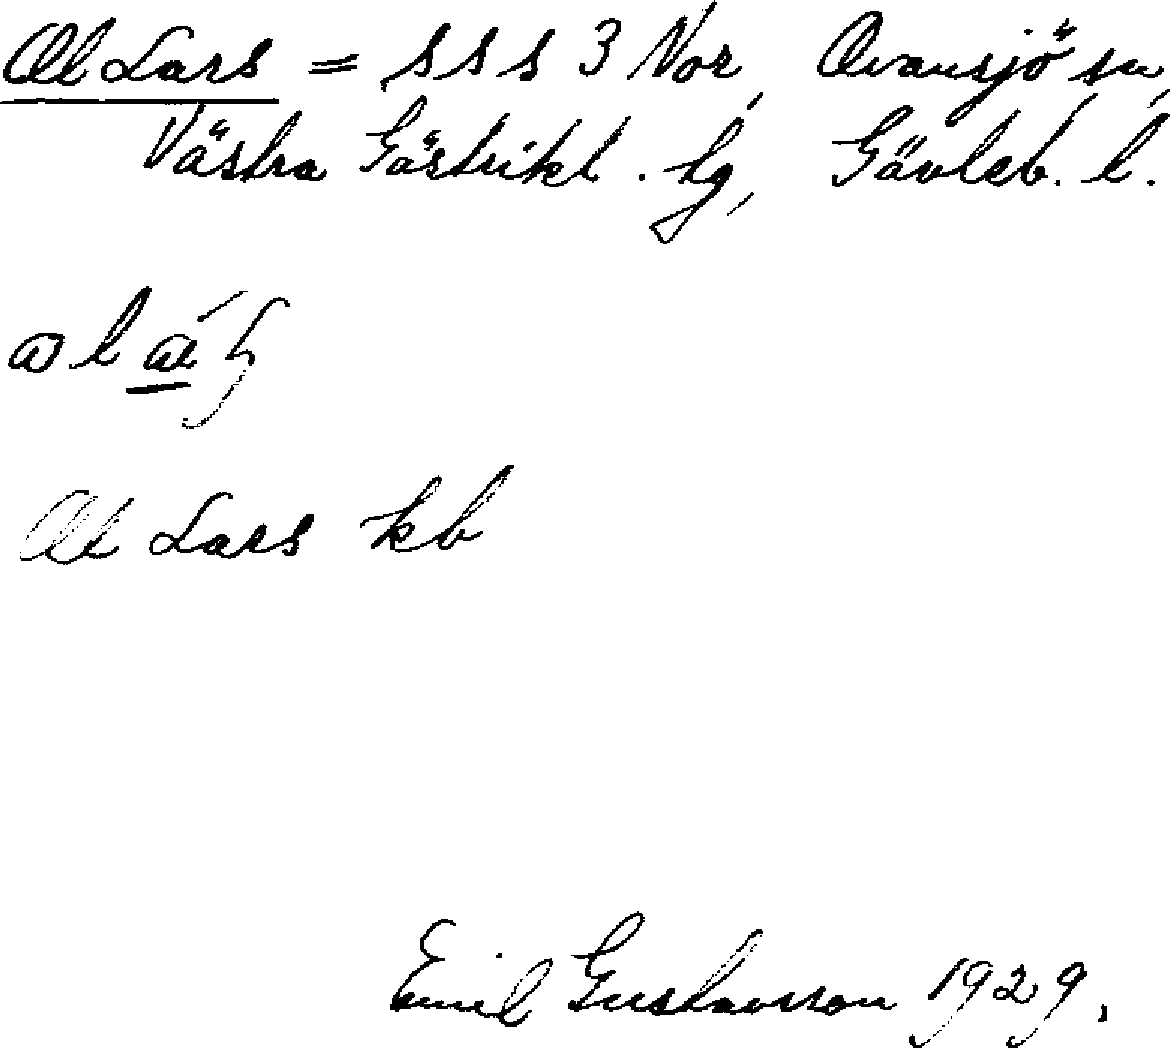 Ol Lars = s s s 3 Vor, Ovansjö sn,
Västra Gästrikl. tg, Gävleb. l.
Ol Lars kb
Emil Gustavsson 1929.